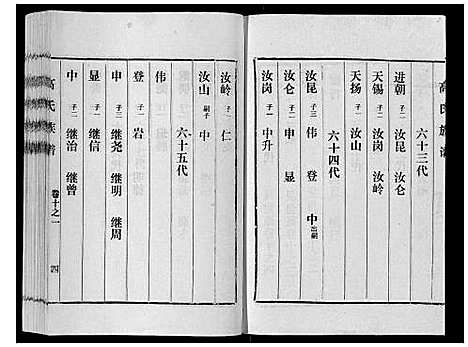 高氏族谱
六十三代
进朝 子二 汝昆 汝仑
天锡 子二 汝岗 汝岭
天扬 子一 汝山
六十四代
汝昆 子三 伟 登 中出嗣
汝仑 子二 申 显
汝岗 子一 中升
汝岭 子一 仁
汝山 嗣子 中
六十五代
伟
登 子一 岩
申 子三 继尧 继明 继周
显 子一 继信
中 子二 继治 继曾
高氏族谱 卷十之一 四